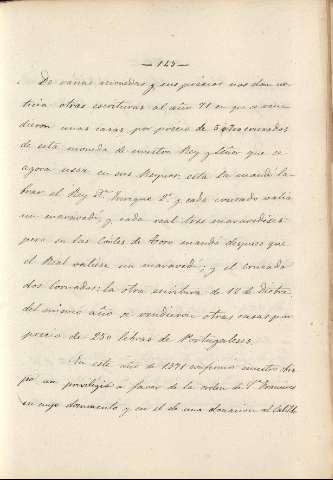 — 123 —
De varias monedas y sus precios nos dan no
ticia otras escrituras al año 71 en que se ven
dieron unas casas por precio de cruzados
de esta moneda de nuestro Rey y Señor que se
agora usa en sus Reynos, ella la mandó la
brar el Rey Dn. Enrique 2º y cada cruzado valia
un maravedí, y cada real tres maravedises
pero en las Cortes de Toro mandó despues que
el Real valiese un maravedí, y el cruzado
dos cornados: la otra escritura de 12 de Dicbre.
del mismo año se vendieron otras casas por
precio de 250 lebras de Portugaleses.
En este año de 1371 confirmó nuestro obis
po un privilegio a favor de la orden de Sto. Domingo
en cuyo documento y en el de una donacion al Cabildo